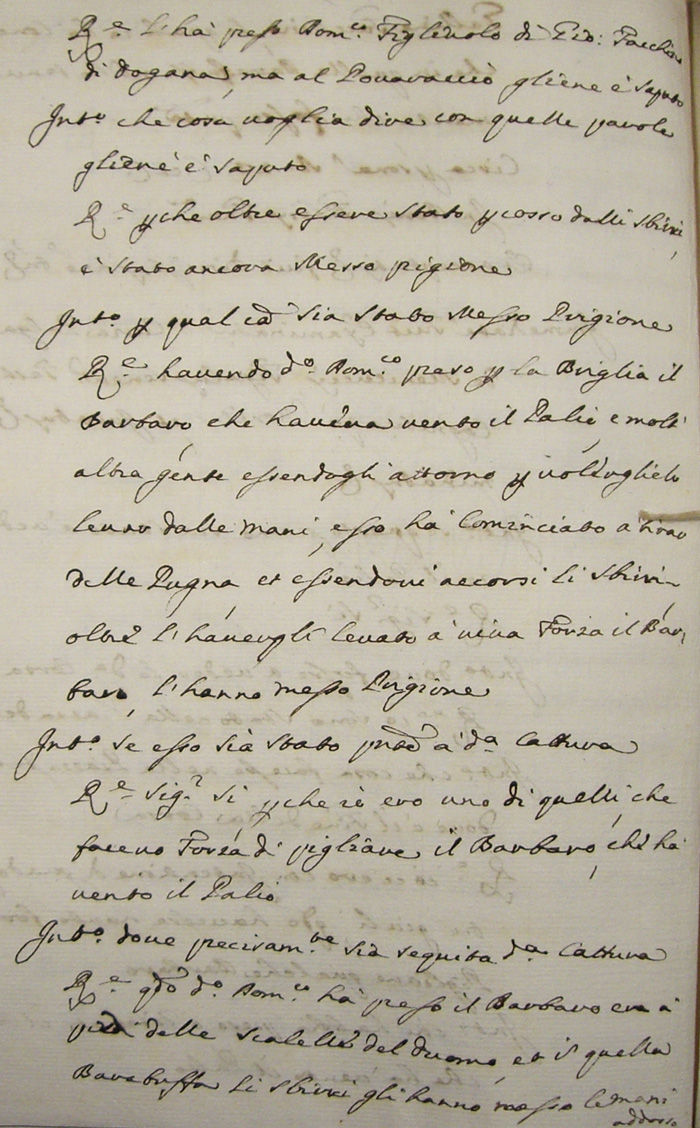 R.e l'ha preso Dom.co Figlivolo di Gio: Facchin
di dogana, ma al Povaraccio gliene è saputo
Int.o che cosa voglia dire con quelle parole
gliene è saputo
R.e pche oltre essere stato pcosso dalli sbirri,
è stato ancora Messo pigione
Int.o p qual cā sia stato Messo Prigione
R.e havendo d.o Dom.co preso p la Briglia il
Barbaro, che haveva vento il Palio, e molt
altra gente essendogli attorno p volerglielo
levar dalle mani, esso ha cominciato a tirar
delle Pugna, et essendovi accorsi li sbirri
oltre l'havergli levato a viva Forza il Bar,
baro, l'hanno messo Prigione
Int.o se esso sia stato pnte a d.a Cattura
R.e Sig.r si pche io ero uno di quelli, che
facevo Forza di pigliare il Barbaro, chè ha
vento il Palio
Int.o dove precisam.te sia seguita d.a Cattura
R.e qdo d.o Dom.co ha preso il Barbaro era a
piedi delle scalelle del duomo, et i quella
Barabuffa li sbirri gli hanno messo le mani
addosso